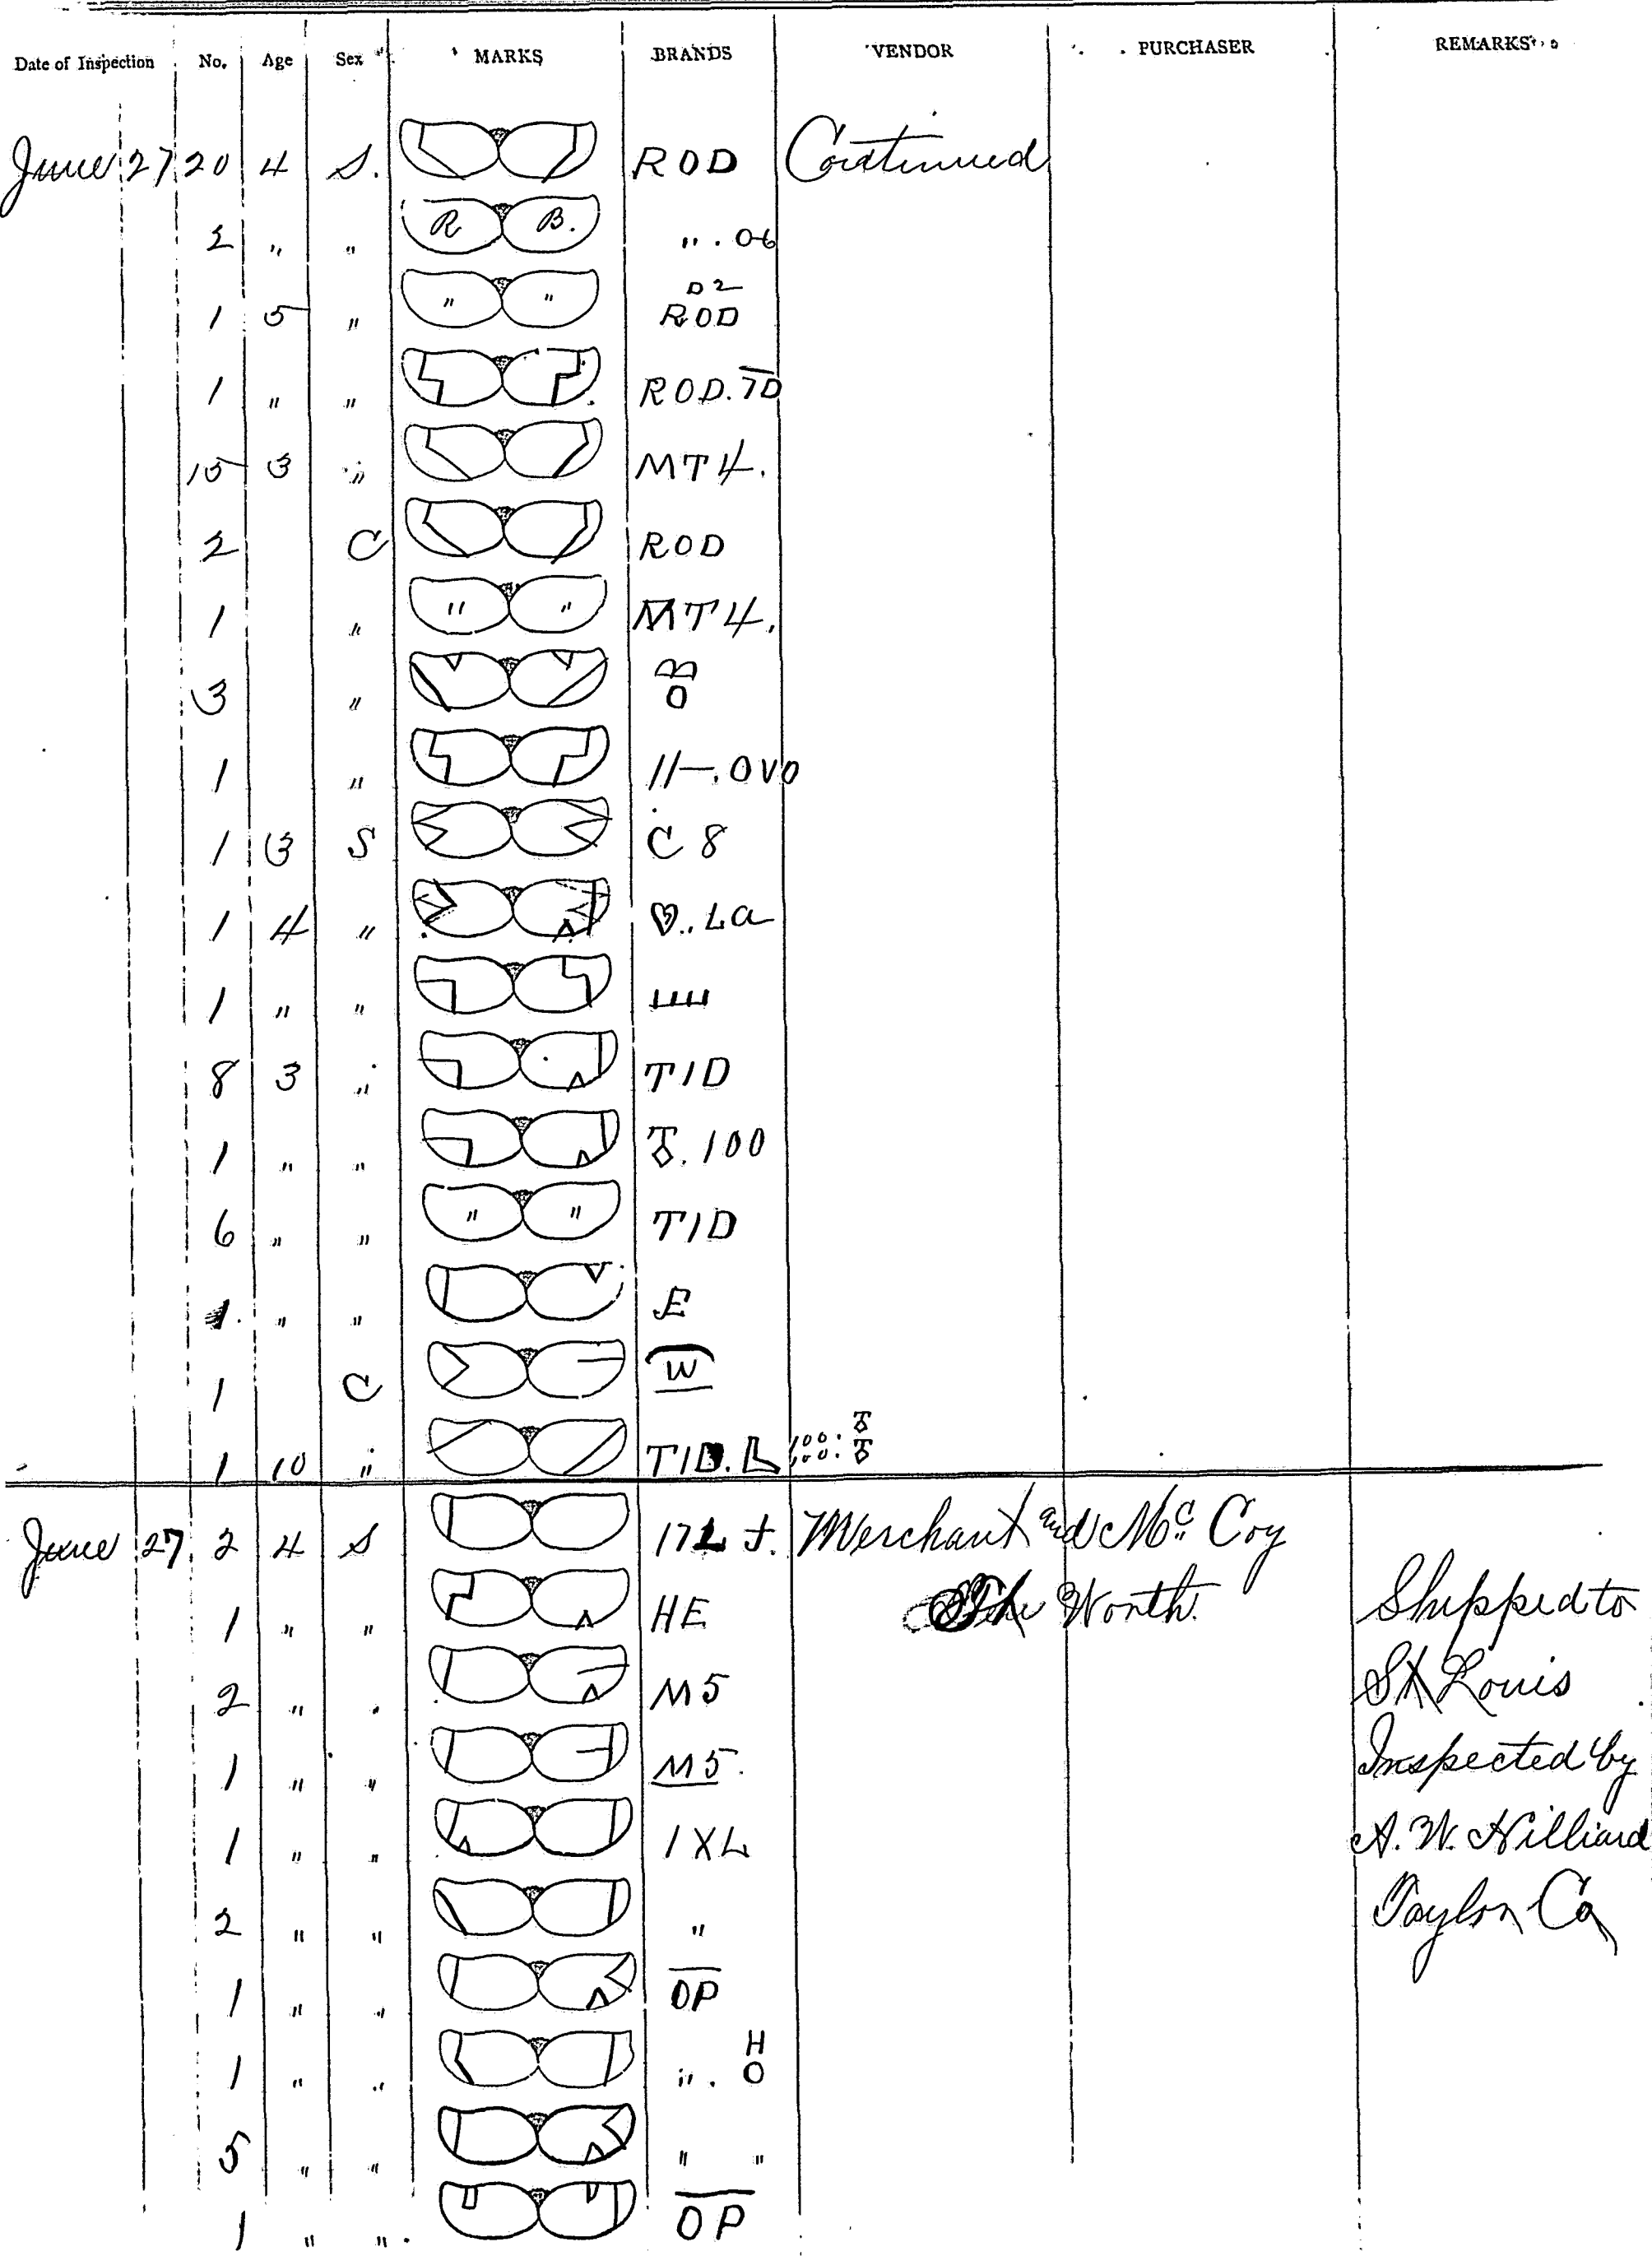 Date of Inspection No. Age Sex MARKS BRANDS VENDOR PURCHASER REMARKS
June 27 20 4 S. ROD Continued
2 " " R B. " . 06
1 5 " " " D2 ROD
1 " " ROD. 7D
15 3 " MT4.
2 C ROD
1 " " " MT4.
3 " O
1 " 11—. OVO
1 3 S C 8
1 4 " ♡.. La
1 " "
8 3 " TID
1 " " . 100
6 " " " " TID
1. " " E
1 C W
1 10 " TID. L 100. 100.
June 27. 2 4 S 17L J. Merchant and Mc Coy
1 " " HE Worth. Shipped to
2 " " M5 St Louis
1 " " M5. Inspected by
1 " " 1XL A. W. Hilliard
2 " " " Taylor Co
1 " " OP
1 " " " . H O
5 " " " "
1 " " . OP